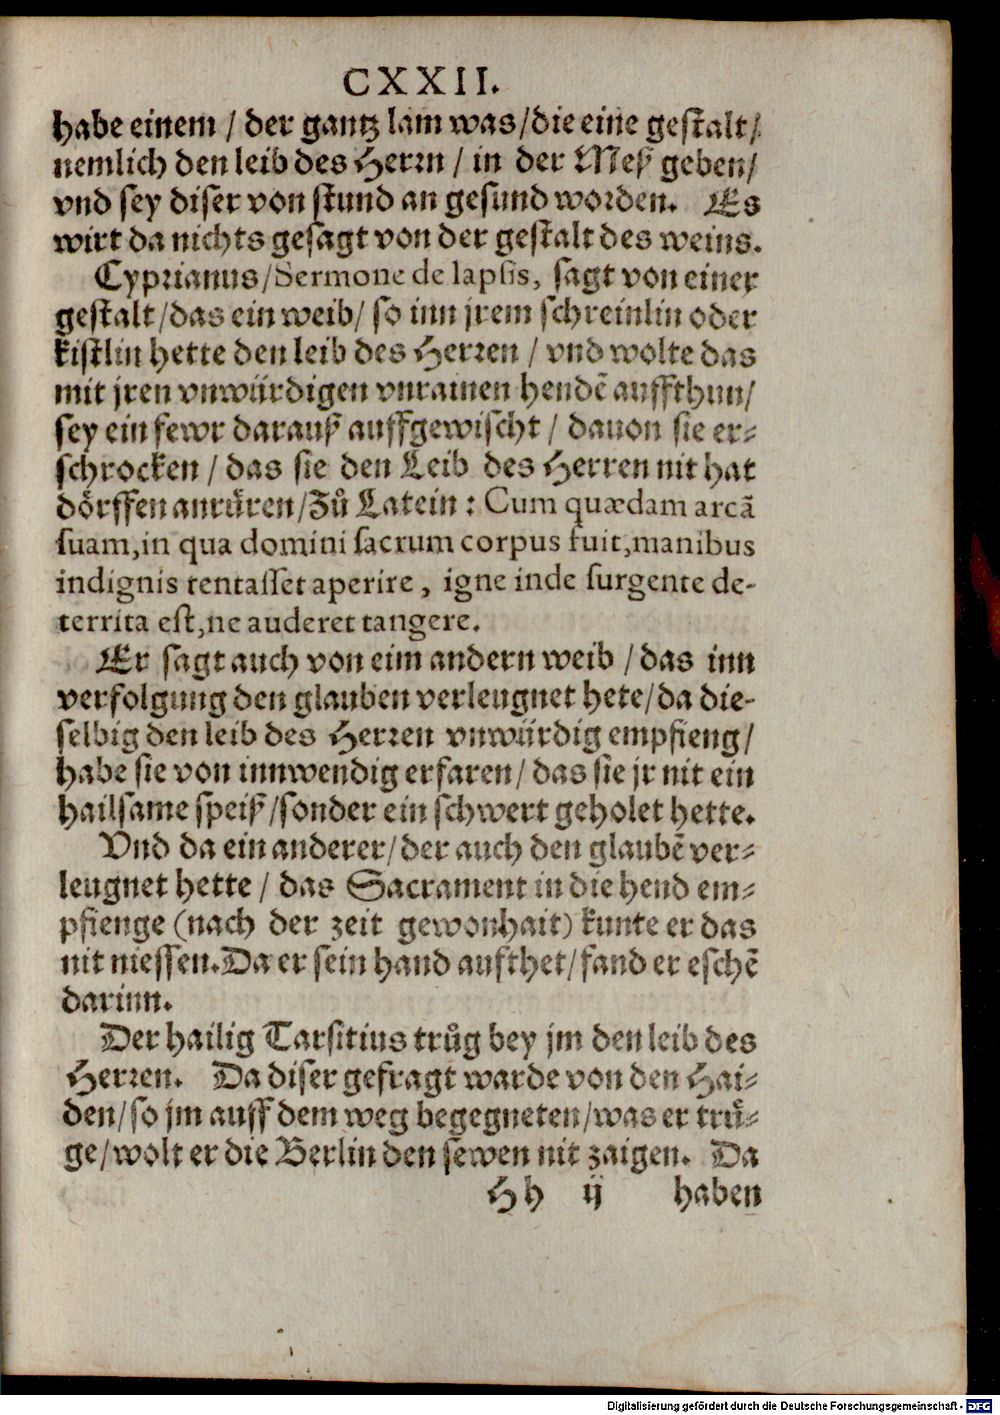 CXXII.
habe einem / der gantz lam was/die eine gestalt/
nemlich den leib des Herrn / in der Meß geben/
vnd sey diser von stund an gesund worden. Es
wirt da nichts gesagt von der gestalt des weins.
Cyprianus/Sermone de lapsis, sagt von einer
gestalt/das ein weib/ so inn jrem schreinlin oder
kistlin hette den leib des Herren / vnd wolte das
mit jren vnwürdigen vnrainen hendē auffthun/
sey ein fewr darauß auffgewischt / dauon sie er-
schrocken / das sie den Leib des Herren nit hat
dörffen anrüren/Zů Latein: Cum quædam arcā
suam,in qua domini sacrum corpus fuit,manibus
indignis tentasset aperire, igne inde surgente de-
territa est,ne auderet tangere.
Er sagt auch von eim andern weib / das inn
verfolgung den glauben verleugnet hete/da die-
selbig den leib des Herren vnwürdig empfieng/
habe sie von innwendig erfaren/das sie jr nit ein
hailsame speiß/sonder ein schwert geholet hette.
Vnd da ein anderer/der auch den glaubē ver-
leugnet hette / das Sacrament in die hend em-
pfienge (nach der zeit gewonhait) kunte er das
nit niessen. Da er sein hand aufthet/fand er eschē
darinn.
Der hailig Tarsitius trůg bey jm den leib des
Herren. Da diser gefragt warde von den Hai-
den/so jm auff dem weg begegneten/was er trü-
ge/wolt er die Berlin den sewen nit zaigen. Da
Hh ij haben
Digitalisierung gefördert durch die Deutsche Forschungsgemeinschaft - DFG